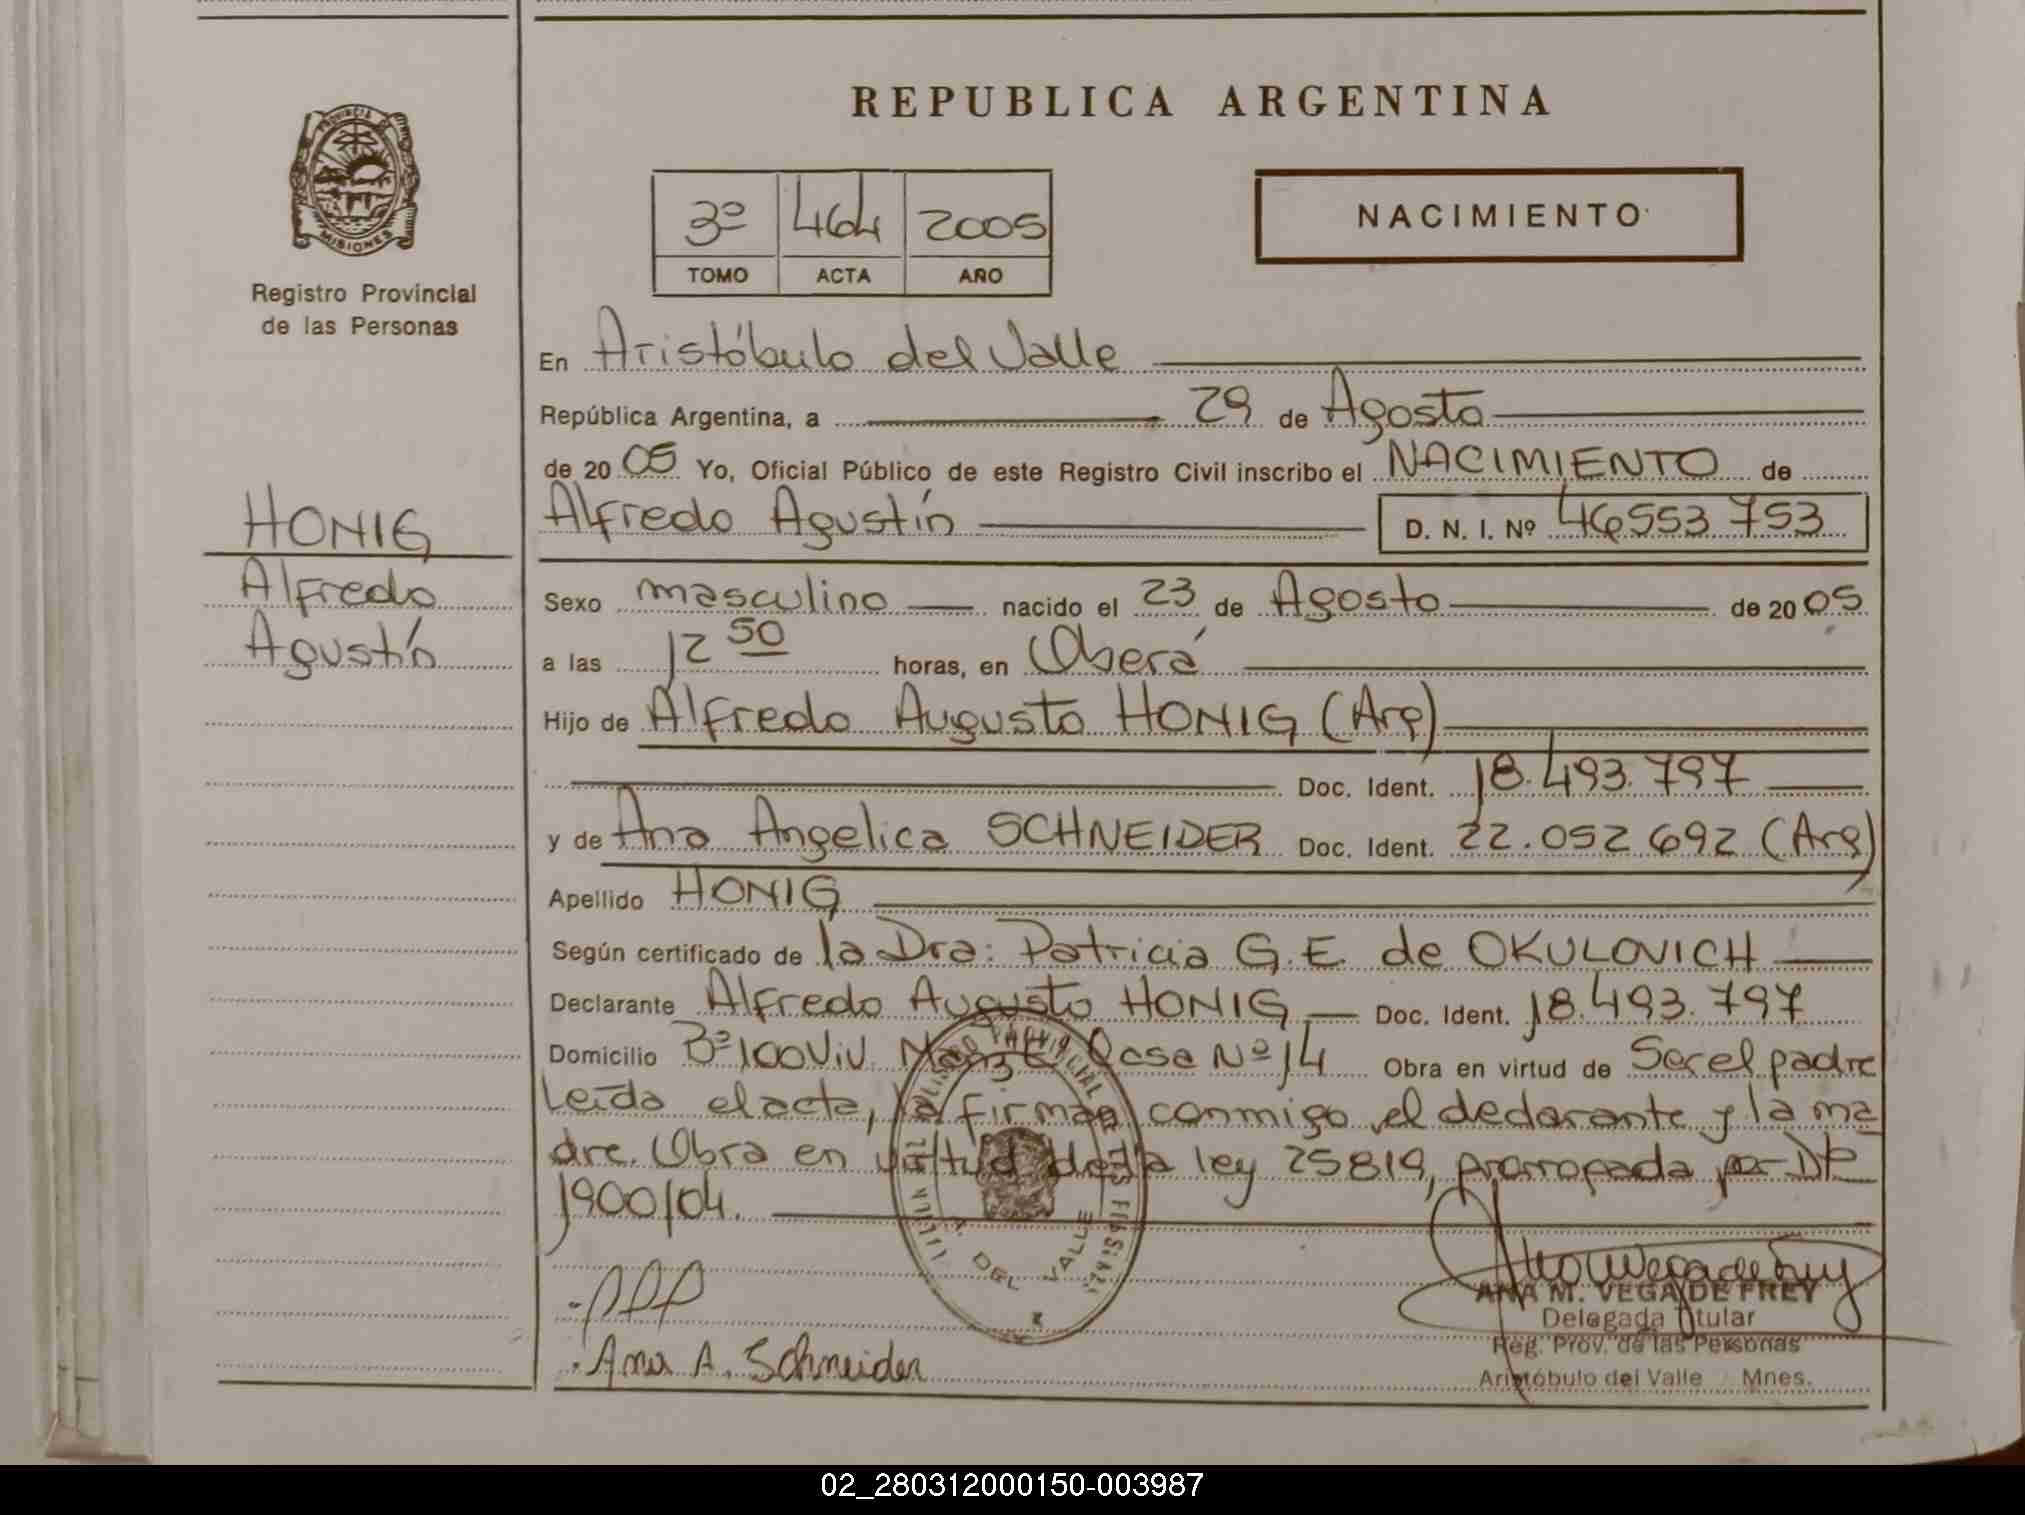 REPUBLICA ARGENTINA
PROVINCIA DE
MISIONES
Registro Provincial
de las Personas
3º 464 2005
TOMO ACTA AÑO
NACIMIENTO
En Aristóbulo del Valle
República Argentina, a 29 de Agosto
de 2005 Yo, Oficial Público de este Registro Civil inscribo el NACIMIENTO de
Alfredo Agustín D. N. I. Nº 46553.753
HONIG
Alfredo
Agustín
Sexo masculino nacido el 23 de Agosto de 2005
a las 12 50 horas, en Oberá
Hijo de Alfredo Augusto HONIG (Arg)
Doc. Ident. 18.493.797
y de Ana Angelica SCHNEIDER Doc. Ident. 22.052.692 (Arg)
Apellido HONIG
Según certificado de la Dra: Patricia G.E. de OKULOVICH
Declarante Alfredo Augusto HONIG Doc. Ident. 18.493.797
Domicilio Bº 100 Viv. Casa Nº 14 Obra en virtud de Ser el padre
Leída el acta, la firman conmigo el declarante y la ma
dre. Obra en virtud de la ley 25819, prorrogada por
1900/04.
DEL VALLE
Ana A. Schneider
ANA M. VEGA DE FREY
Delegada Titular
Reg. Prov. de las Personas
Aristóbulo del Valle Mnes.
02_280312000150-003987